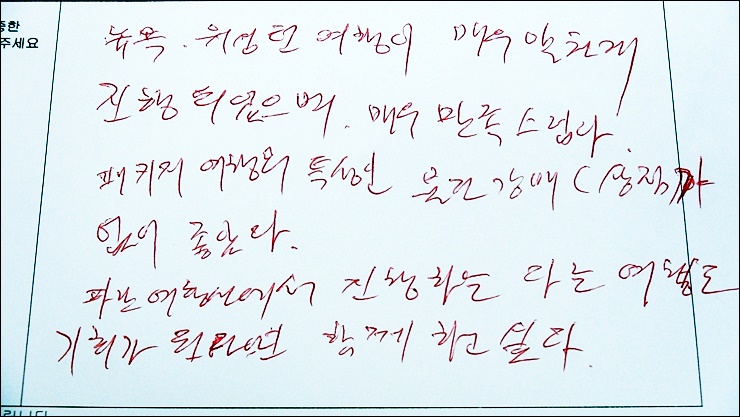 중한
주세요
뉴욕. 워싱턴 여행이 매우 알차게
진행 되었으며. 매우 만족스럽다.
패키지 여행의 특성인 물건강매(상점)가
없어 좋았다.
파란여행사에서 진행하는 다른 여행도
기회가 된다면 함께 하고 싶다.
립니다